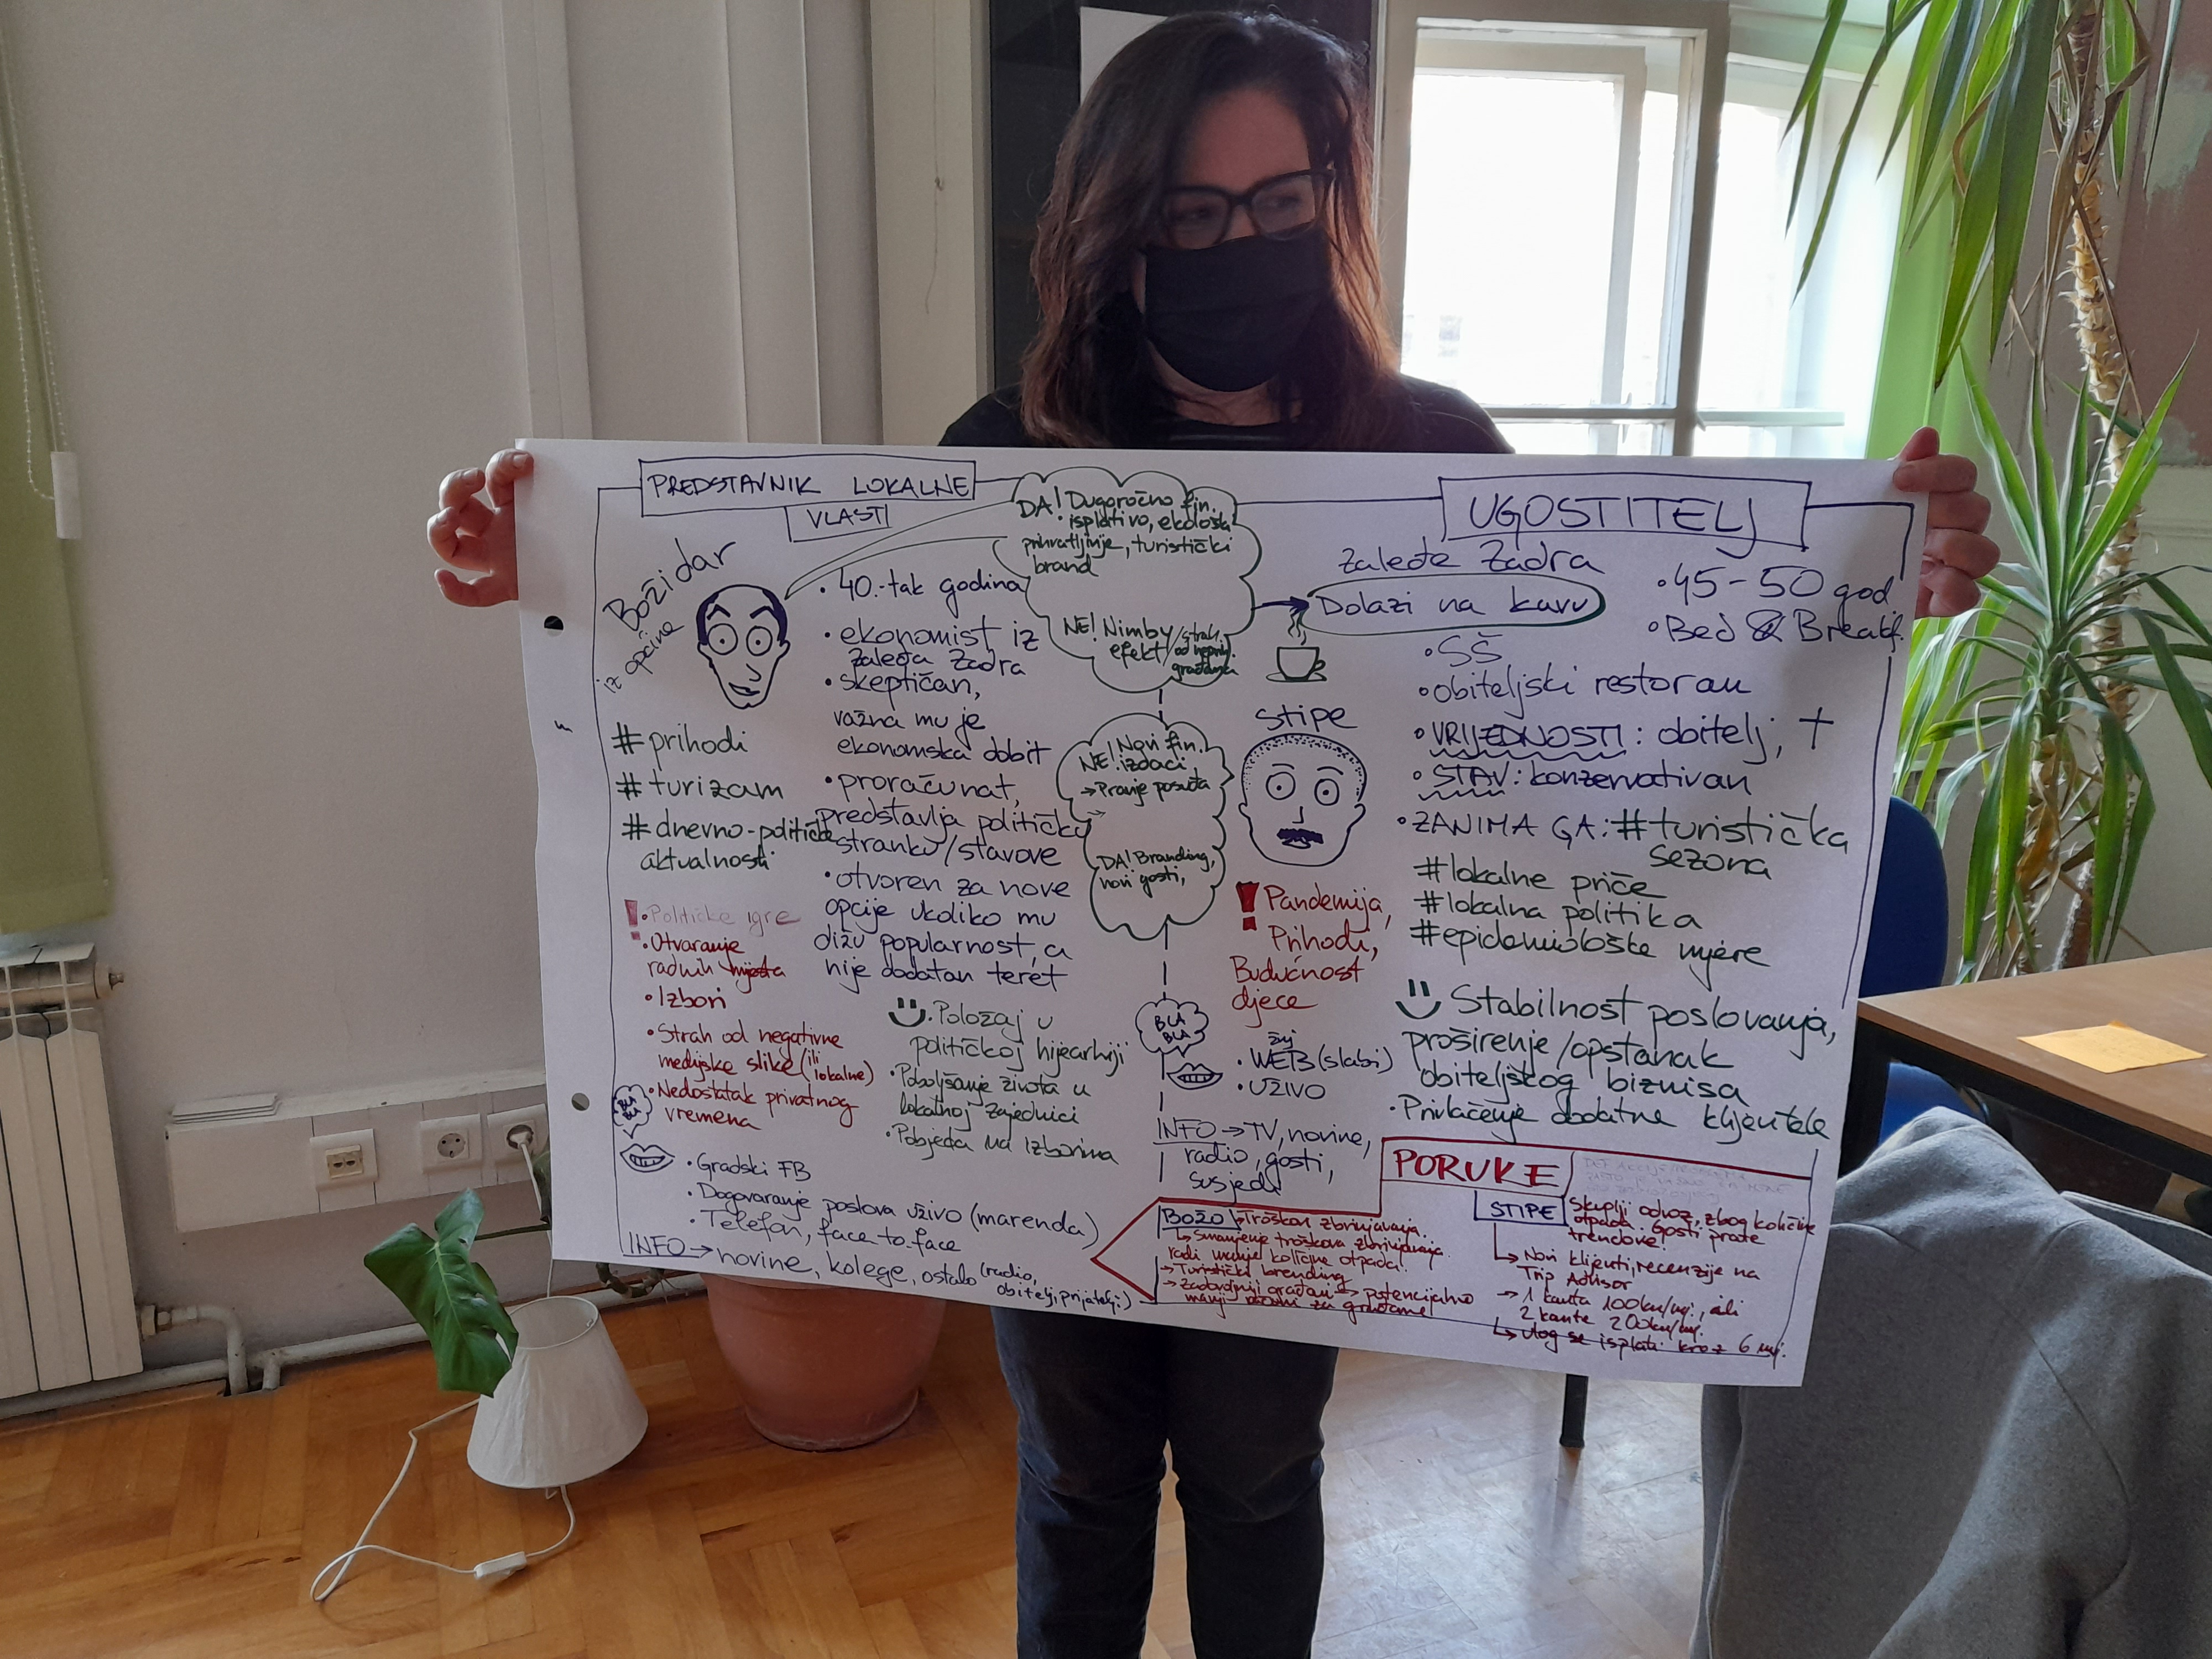 PREDSTAVNIK LOKALNE
VLASTI
Božidar
iz općine
• 40.-tak godina
• ekonomist iz
zaleđa Zadra
• skeptičan,
važna mu je
ekonomska dobit
• proračunat,
predstavlja političku
stranku/stavove
• otvoren za nove
opcije ukoliko mu
dižu popularnost, a
nije dodatan teret
# prihodi
# turizam
# dnevno-političke
aktualnosti
! • Političke igre
• Otvaranje
radnih mjesta
• Izbori
• Strah od negativne
medijske slike (ili
lokalne)
• Nedostatak privatnog
vremena
• Položaj u
političkoj hijearhiji
• Poboljšanje života u
lokalnoj zajednici
• Pobjeda na izborima
BLA
BLA
• Gradski FB
• Dogovaranje poslova uživo (marenda)
• Telefon, face to face
INFO → novine, kolege, ostalo (radio,
obitelj, prijatelji)
DA! Dugoročno fin.
isplativo, ekološki
prihvatljivije, turistički
brand
NE! Nimby / strah
efekt od
građana
Novi fin.
NE! izdaci
→ Pranje posuđa
DA! Branding,
novi gosti,
UGOSTITELJ
zaleđe Zadra
Dolazi na kavu
• 45-50 god.
• Bed & Breakf.
• SŠ
• obiteljski restoran
• VRIJEDNOSTI: obitelj, †
• STAV: konzervativan
• ZANIMA GA: # turistička
sezona
# lokalne priče
# lokalna politika
# epidemiološke mjere
stipe
! Pandemija,
Prihodi,
Budućnost
djece
Stabilnost poslovanja,
proširenje/opstanak
obiteljskog biznisa
• Privlačenje dodatne klijentele
BLA
BLA
• WEB (slabi)
• UŽIVO
INFO → TV, novine,
radio, gosti,
susjedi
PORUKE
BOŽO Troškovi zbrinjavanja
↳ Smanjenje troškova zbrinjavanja
radi manje količine otpada.
→ Turistički brending
→ Zadovoljniji građani → potencijalno
manji za građane
STIPE Skuplji odvoz, zbog količine
otpada. Gosti prate
trendove!
↳ Novi klijenti, recenzije na
Trip Advisor
→ 1 kanta 100kn/mj., ili
2 kante 200kn/mj.
↳ Ulog se isplati kroz 6 mj.